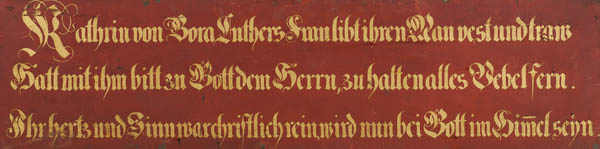 Kathrin von Bora Luthers Frau libt ihren Man vest und traw
Hatt mit ihm bitt zu Gott dem Herrn, zu halten alles Vebel fern.
Ihr hertz und Sinn war christlich rein, wird nun bei Gott im Him̄el seyn.